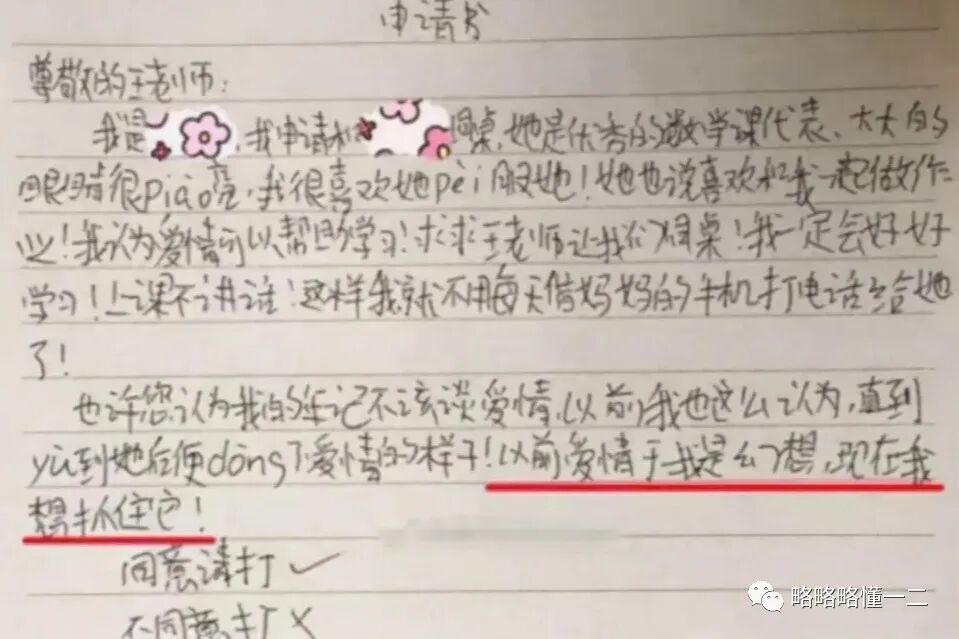 申请书
尊敬的王老师：
我是 ，我申请和 同桌，她是优秀的数学课代表、大大的
眼睛很piào亮，我很喜欢她pèi服她！她也说喜欢和我一起做作
业！我认为爱情可以帮助学习！求求王老师让我们同桌！我一定会好好
学习！上课不讲话！这样我就不用每天借妈妈的手机打电话给她
了！
也许您认为我的年记不该谈爱情，以前我也这么认为，直到
yù到她后便dǒng了爱情的样子！以前爱情于我是幻想，现在我
想抓住它！
同意请打✓
不同意打×
略略略懂一二